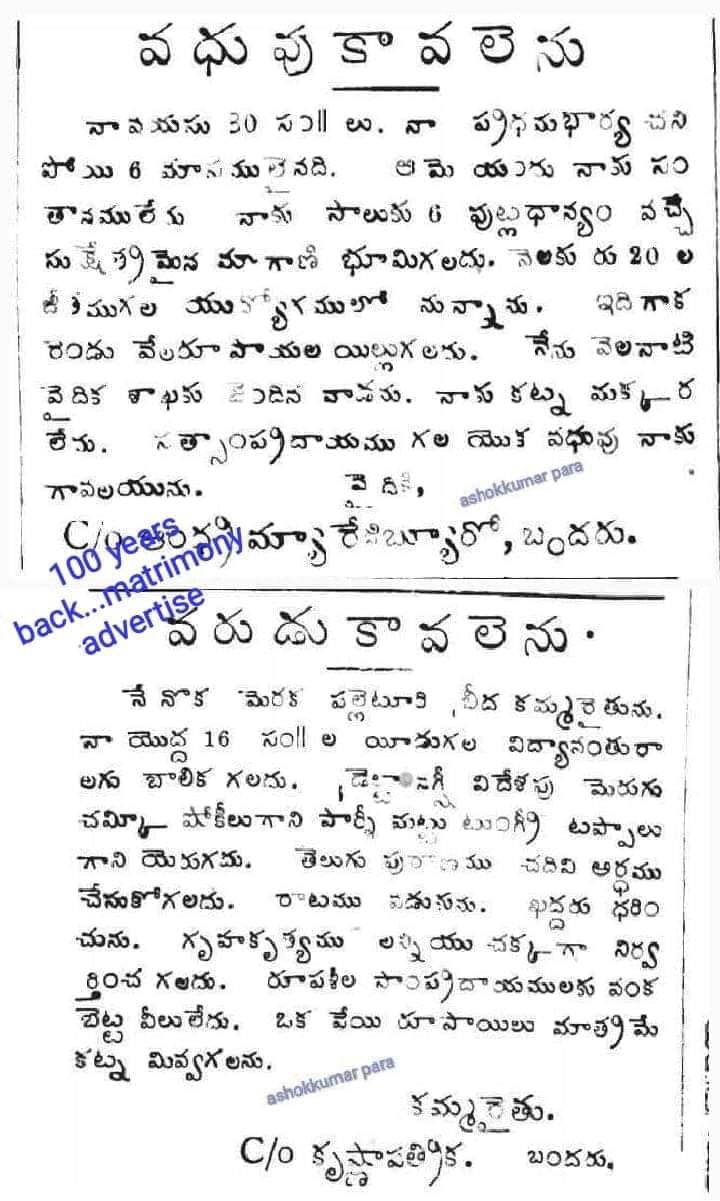 వధువుకావలెను
నా వయసు 30 సం॥ లు. నా ప్రిధమభార్య చని
పోయి 6 మాసములైనది. ఆమె యందు నాకు సం
తానములేదు నాకు సాలుకు 6 పుట్లధాన్యం వచ్చే
సుక్షేత్రిమైన మాగాణి భూమిగలదు. నెలకు రు 20 ల
జీతముగల యుద్యోగములో నున్నాను. ఇదిగాక
రెండు వేలరూపాయల యిల్లుగలదు. నేను వెలనాటి
వైదిక శాఖకు జెందిన వాడను. నాకు కట్న మక్కర
లేదు. సత్సాంప్రిదాయము గల యొక వధువు నాకు
గావలయును. వైదికి,
C/o మ్యారేజిబ్యూరో, బందరు.
ashokkumar para
100 years
back...matrimony
advertise
వరుడుకావలెను.
నేనొక మెరక పల్లెటూరి బీద కమ్మరైతును.
నా యొద్ద 16 సం॥ ల యీడుగల విద్యానంతురా
లగు బాలిక గలదు. విదేశపు మెరుగు
చమ్కీ షోకీలుగాని పార్సీ మట్టు టుంగ్రీ టప్పాలు
గాని యెరుగదు. తెలుగు పురాణము చదివి అర్ధము
చేసుకోగలదు. రాటము వడుకును. ఖద్దరు ధరిం
చును. గృహకృత్యము లన్నియు చక్కగా నిర్వ
ర్తించ గలదు. రూపశీల సాంప్రిదాయములకు వంక
బెట్ట వీలులేదు. ఒక వేయి రూపాయిలు మాత్రిమే
కట్న మివ్వగలను.
ashokkumar para
కమ్మరైతు.
C/o కృష్ణాపత్రిక. బందరు.